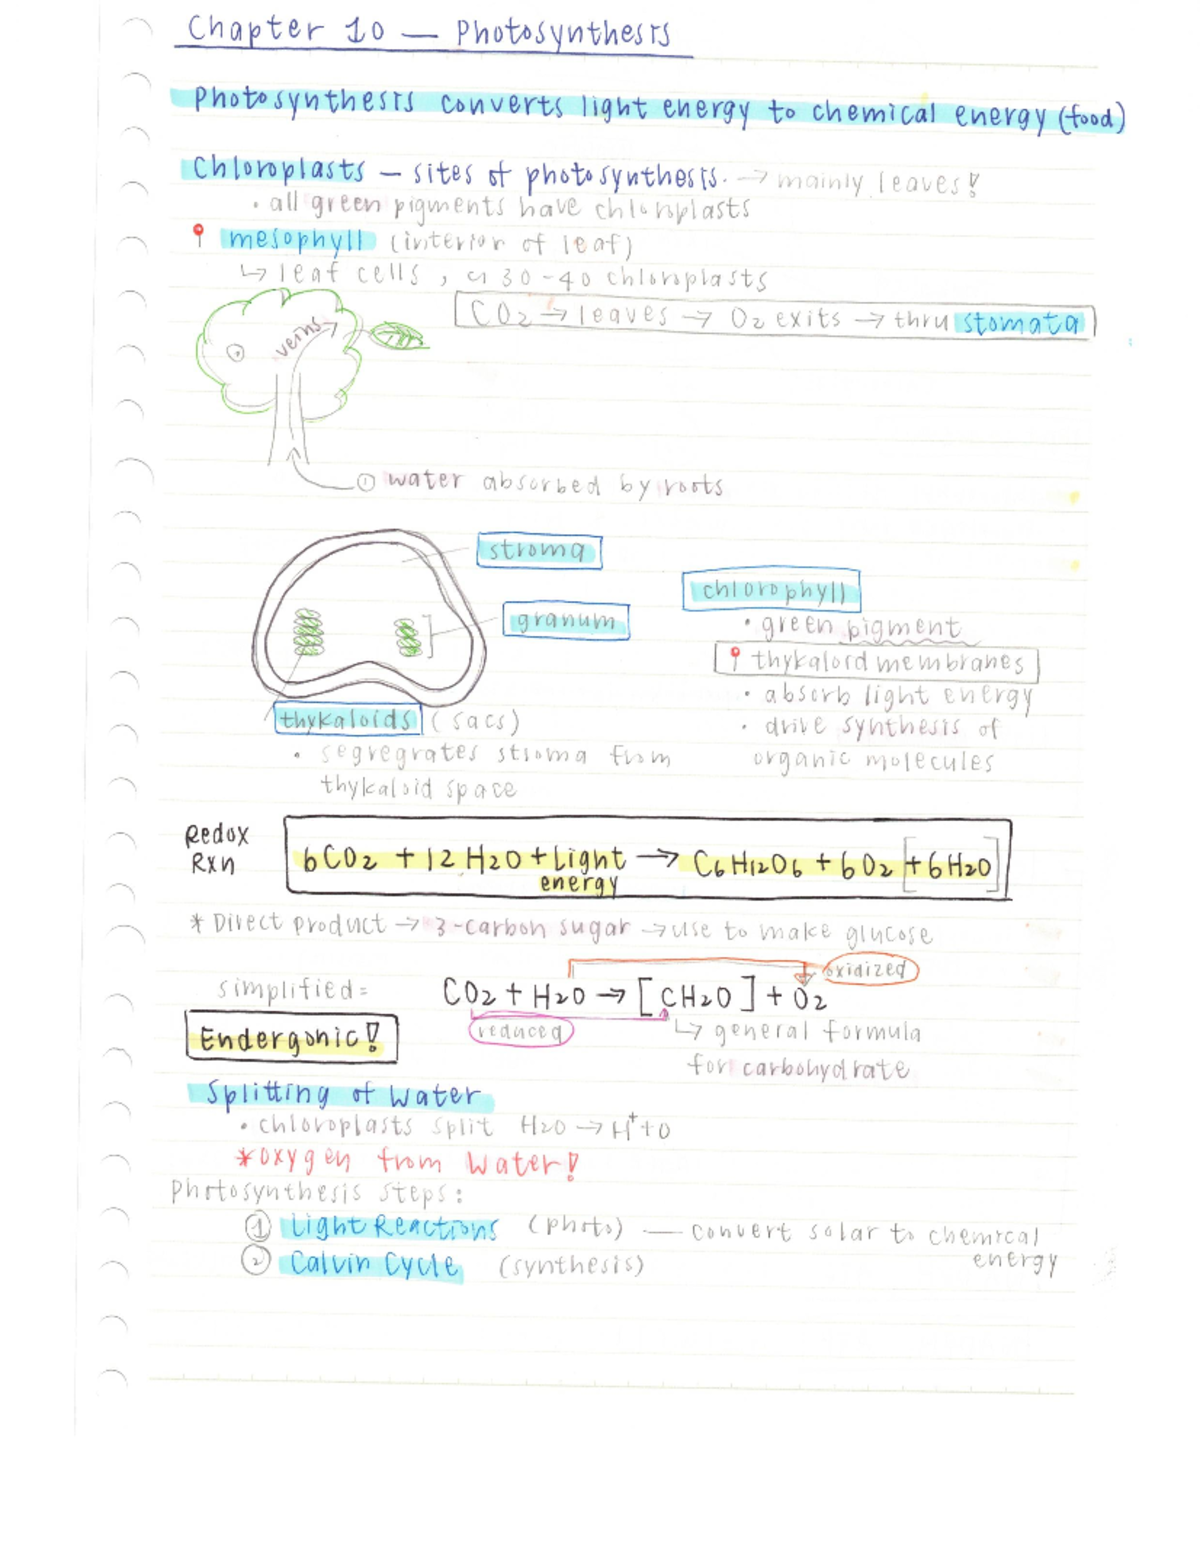 Chapter 10 — Photosynthesis
Photosynthesis converts light energy to chemical energy (food)
Chloroplasts – sites of photosynthesis. → mainly leaves!
• all green pigments have chloroplasts
mesophyll (interior of leaf)
↳ leaf cells, 30-40 chloroplasts
CO2 → leaves → O2 exits → thru stomata
veins →
②
① water absorbed by roots
stroma
granum
chlorophyll
• green pigment
thykaloid membranes
• absorb light energy
• drive synthesis of
organic molecules
thykaloids (sacs)
• segregrates stroma from
thykaloid space
Redox
Rxn
6CO2 + 12 H2O + Light → C6H12O6 + 6O2 [+6H2O]
energy
* Direct product → 3-carbon sugar → use to make glucose
oxidized
simplified = CO2 + H2O → [CH2O] + O2
reduced
↳ general formula
for carbohydrate
Endergonic!
Splitting of water
• chloroplasts split H2O → H⁺ + O
* oxygen from water!
Photosynthesis steps:
① Light Reactions (photo) — convert solar to chemical
energy
② Calvin Cycle (synthesis)